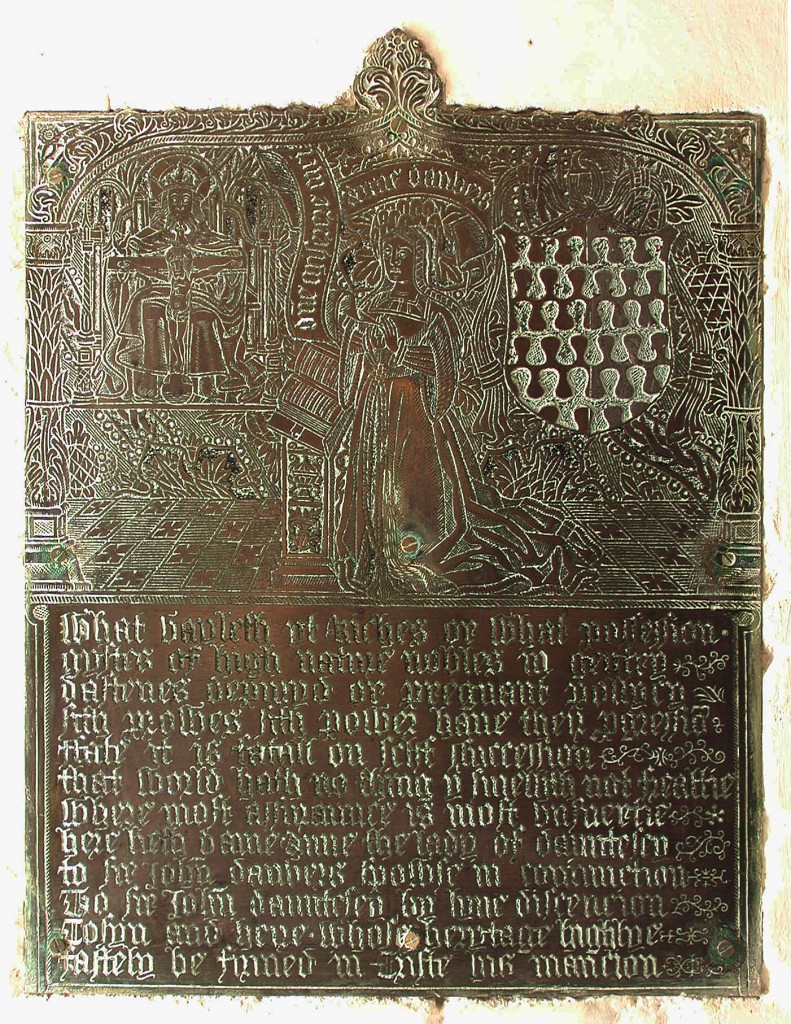 Anne Danvers
What vayleth yt Riches or what possession
gyftes of high nature nobles in gentry
daftenes depuryd or pregnant pollycy
sith prowes sith power have their progression
ffate it is fatall on self succession
that world hath no thing y smellith not frealtie
Where most assuraunce is most unsuertie
here lieth dame Anne the lady of dauntesey
to sir John danvers spowse in coniunction
To sir John dauntesey by lyne discencion
Cosyn and heire whose herytage highlye
fastely be firmed in Criste his mansion